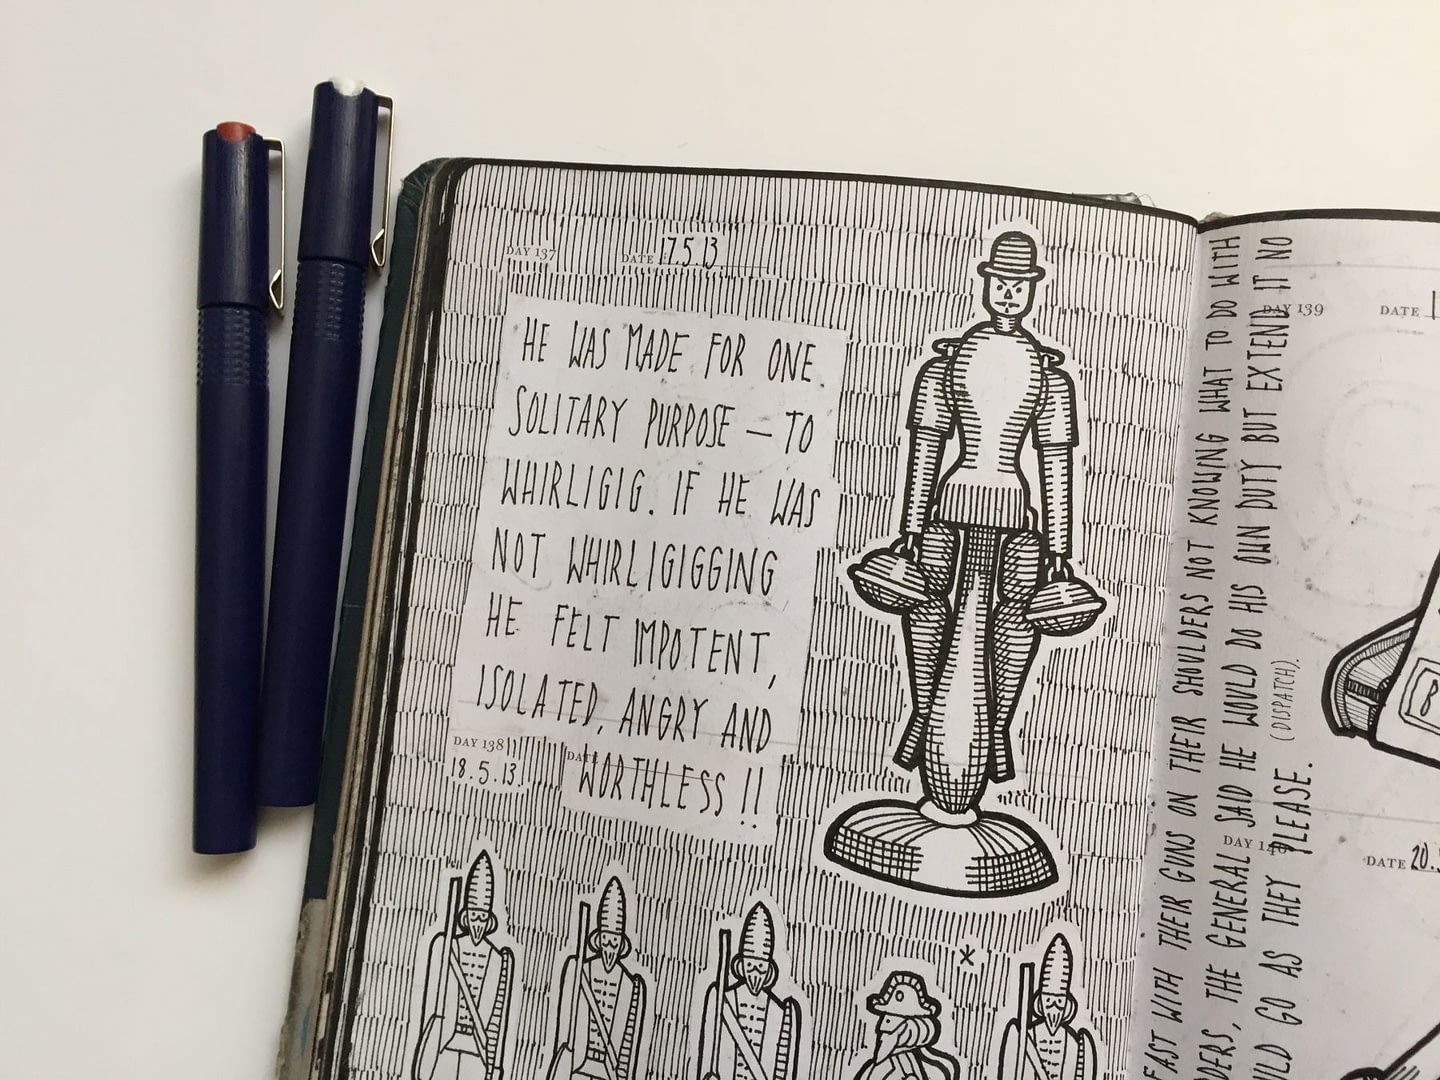 DAY 137
DATE 17.5.13
HE WAS MADE FOR ONE
SOLITARY PURPOSE — TO
WHIRLIGIG. IF HE WAS
NOT WHIRLIGIGGING
HE FELT IMPOTENT,
ISOLATED, ANGRY AND
WORTHLESS !!
DAY 138
DATE
18.5.13.
FAST WITH THEIR GUNS ON THEIR SHOULDERS NOT KNOWING WHAT TO DO WITH
THE GENERAL SAID HE WOULD DO HIS OWN DUTY BUT EXTEND IT NO
GO AS THEY PLEASE. (DISPATCH).
DAY 139
DATE 1
DAY 140
DATE 20.